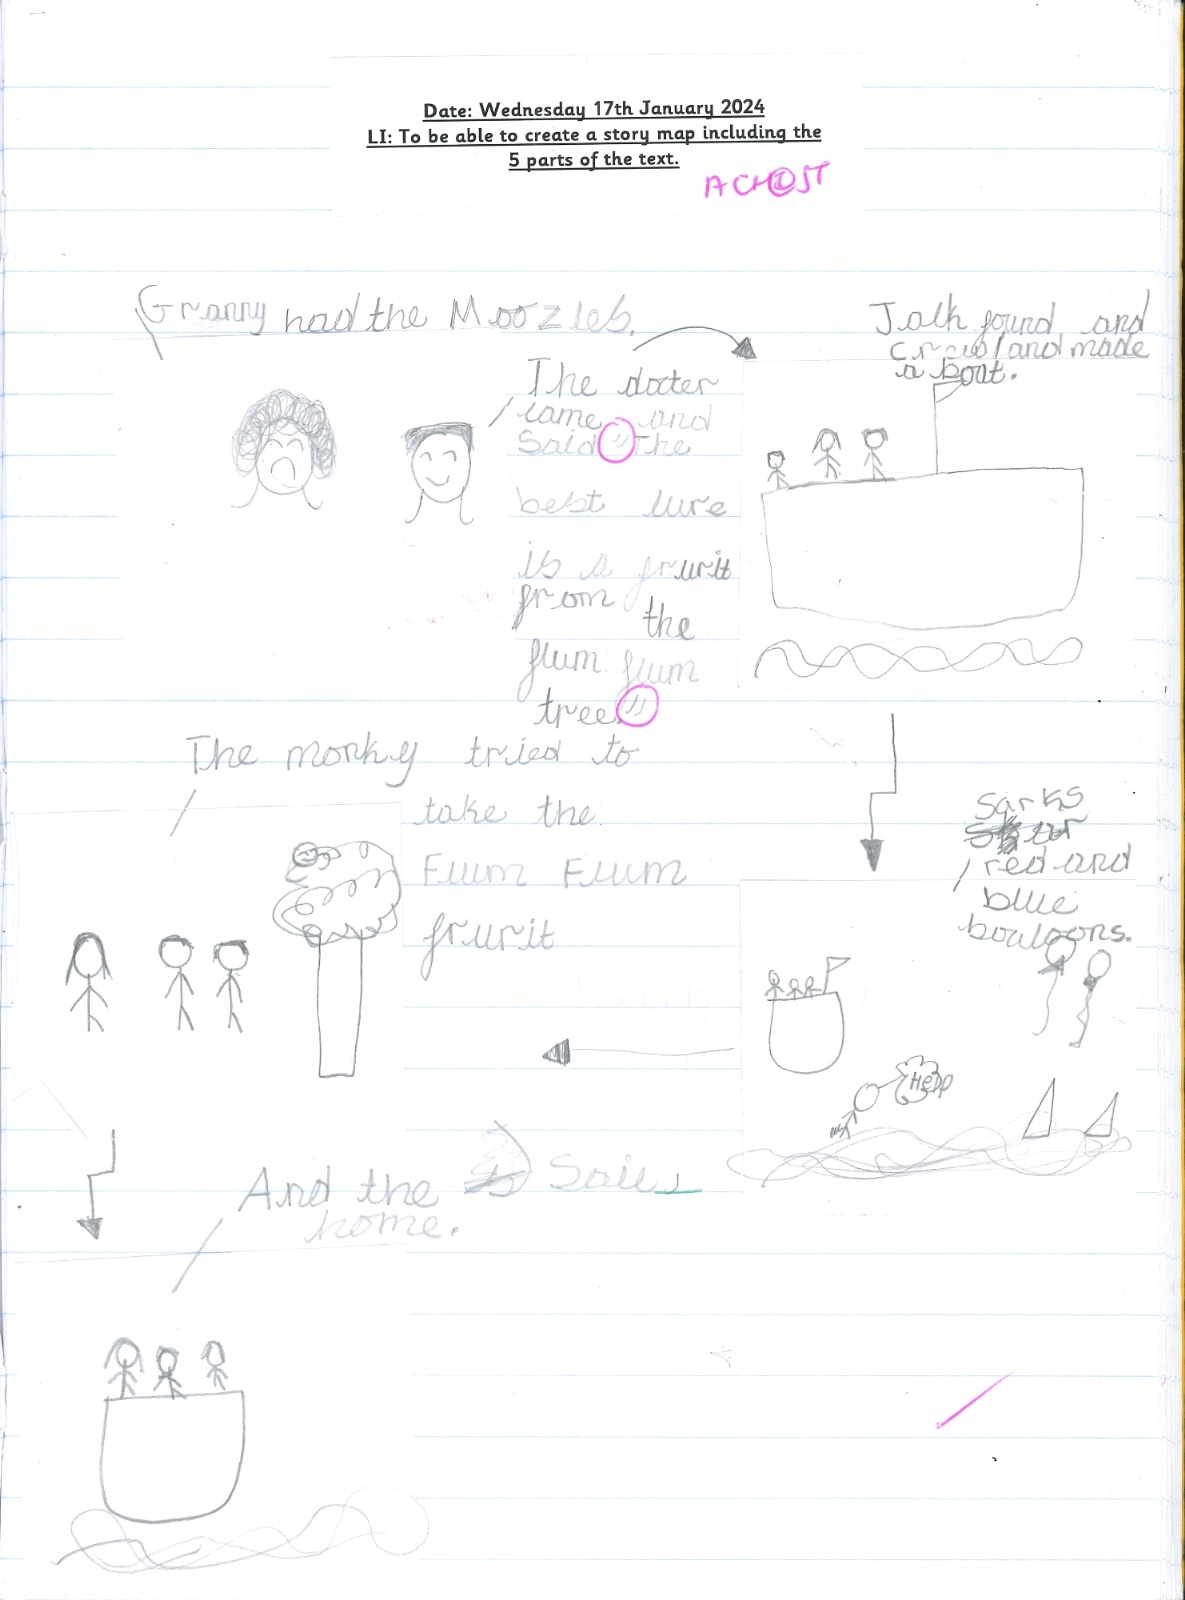 Date: Wednesday 17th January 2024
LI: To be able to create a story map including the
5 parts of the text.
Granny had the Moozles.
The docter
came and
Said "The
best cure
is a frurit
from the
flum flum
tree"
Jakk found and
crew and made
a boat.
Sarks
red and
blue
bouloons.
HeDp
The monky tried to
take the
Flum Flum
frurit
And the Sail
home.